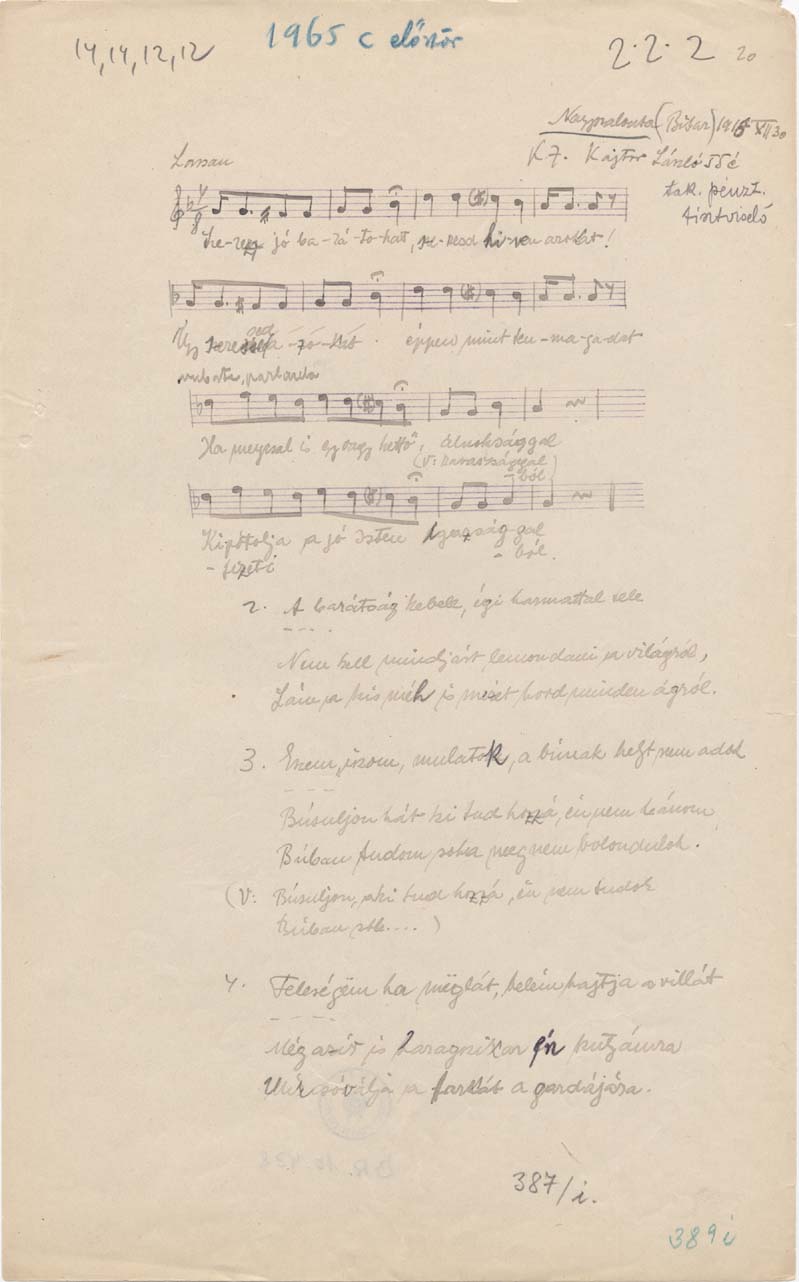 14, 14, 12, 12
1965 c először
2 · 2 · 2
20
Nagyszalonta (Bihar) 1916 XII 30
K Z. Kajtor László 55 é
tak. pénzt.
tisztviselő
Lassan
Szerezz jó ba-rá-to-kat, sze-resd hi-ven azokat!
Úgy szeressed á-zo-kat éppen mint ten-ma-ga-dat
rubato, parlando
Ha megcsal is egy vagy kettő, álnoksággal
(V: ravaszsággal
-ból)
Kipótolja a jó Isten igazság-gal
-fizeti
-ból.
2. A barátság kebele, égi harmattal tele
- - - -
Nem kell mindjárt lemondani a világról,
Lám a kis méh is mézet hord minden ágról.
3. Eszem, iszom, mulatok, a búnak helyt nem adok
- - - -
Búsuljon hát ki tud hozzá, én nem bánom
Búban tudom soha meg nem bolondulok.
(V: Búsuljon, aki tud hozzá, én nem tudok
Búban stb....)
4. Feleségëm ha mëglát, belém hajtja a villát
- - - -
Még azért is haragszik az én kutyámra
Mér csóválja a farkát a gazdájára.
387/i.
389 i